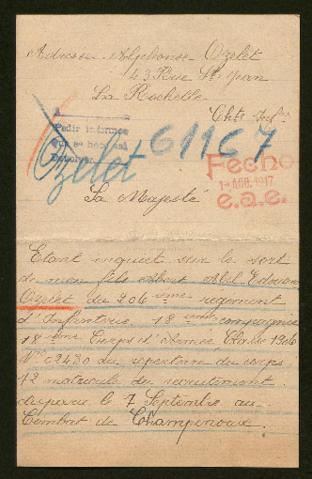 Adresse Alphonse Ozelet
43 Rue St Jean
La Rochelle
Chte Infre
A
Pedir informe
que se hace así
Devolver
61167
Ozelet
Fecho
1 AGO. 1917
e.a.e.
Sa Majesté
Etant inquiet sur le sort
de mon fils Albert Abel Edouard
Ozelet du 206 ème regiment
d'Infanterie 18 ème compagnie
18 ème Corps d'Armée Classe 1906
No 02430 du repertoire du corps
12 matricule du recrutement
disparu le 7 Septembre au
Combat de Champenoux.